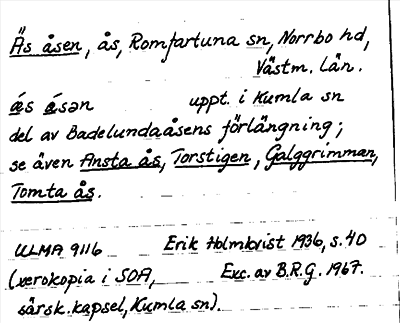 Äs åsen, ås, Romfartuna sn, Norrbo hd,
Västm. län.
ǽs ǽsən uppt. i Kumla sn
del av Badelundaåsens förlängning;
se även Ansta ås, Torstigen, Galggrimman,
Tomta ås.
ULMA 9116 Erik Holmkvist 1936, s. 40
(xerokopia i SOA, Exc. av B.R.G. 1967.
särsk. kapsel, Kumla sn).